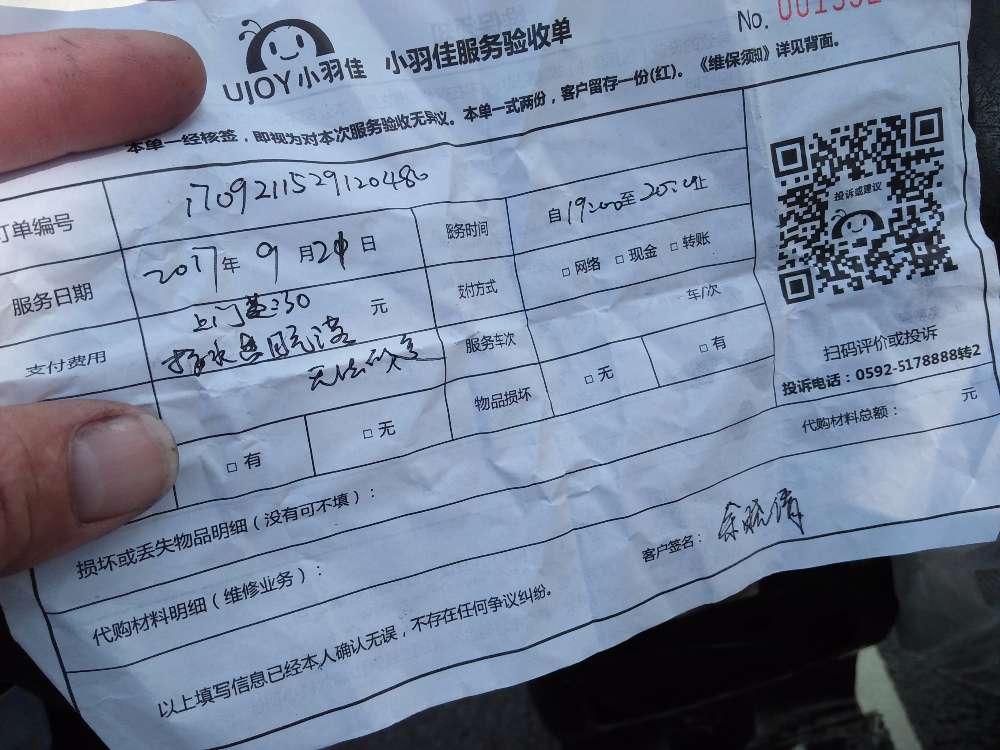 UJOY小羽佳 小羽佳服务验收单 No.
本单一经核签，即视为对本次服务验收无异议。本单一式两份，客户留存一份(红)。《维保须知》详见背面。
订单编号 1709211529120480
服务日期 2017年 9月 21日 服务时间 自19:00至20:00止
支付费用 上门费:30 元 支付方式 □ 网络 □ 现金 □ 转账
服务车次 车/次
□ 有 □ 无 物品损坏 □ 无 □ 有
投诉或建议
扫码评价或投诉
投诉电话：0592-5178888转2
损坏或丢失物品明细（没有可不填）：
代购材料明细（维修业务）： 代购材料总额： 元
以上填写信息已经本人确认无误，不存在任何争议纠纷。 客户签名：